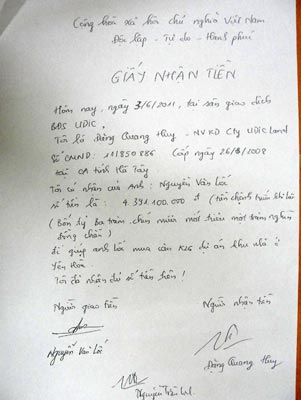 Cộng hoà xã hội chủ nghĩa Việt Nam
Độc lập - Tự do - Hạnh phúc
GIẤY NHẬN TIỀN
Hôm nay, ngày 3/6/2011, tại sàn giao dịch
BĐS UDIC,
Tôi là Đặng Quang Huy - NVKD Cty UDIC Land
Số CMND: 111850886 Cấp ngày 26/8/2008
tại CA tỉnh Hà Tây
Tôi có nhận của Anh: Nguyễn Văn Lối
số tiền là: 4.391.100.000 đ (tiền chênh
(Bốn tỷ ba trăm chín mươi mốt triệu một trăm nghìn
đồng chẵn)
để giúp anh Lối mua căn dự án khu nhà ở
Yên Hoà.
Tôi đã nhận đủ số tiền trên!
Người giao tiền Người nhận tiền
Nguyễn Văn Lối Đặng Quang Huy
Nguyễn